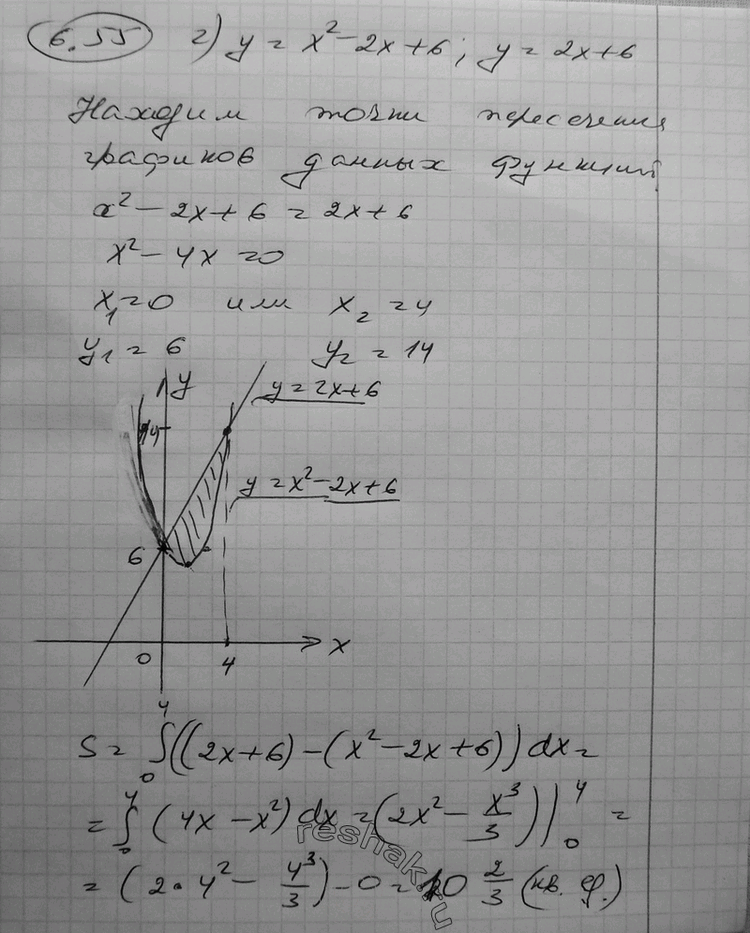 6.55 г) y = x² - 2x + 6; y = 2x + 6
Находим точки пересечения
графиков данных функций
x² - 2x + 6 = 2x + 6
x² - 4x = 0
x₁ = 0 или x₂ = 4
y₁ = 6 y₂ = 14
y
y = 2x + 6
14
y = x² - 2x + 6
6
0 4 x
S = ∫₀⁴ ((2x + 6) - (x² - 2x + 6)) dx =
= ∫₀⁴ (4x - x²) dx = (2x² - x³/3) |₀⁴ =
= (2 · 4² - 4³/3) - 0 = 10 2/3 (кв. ед.)
reshak.ru